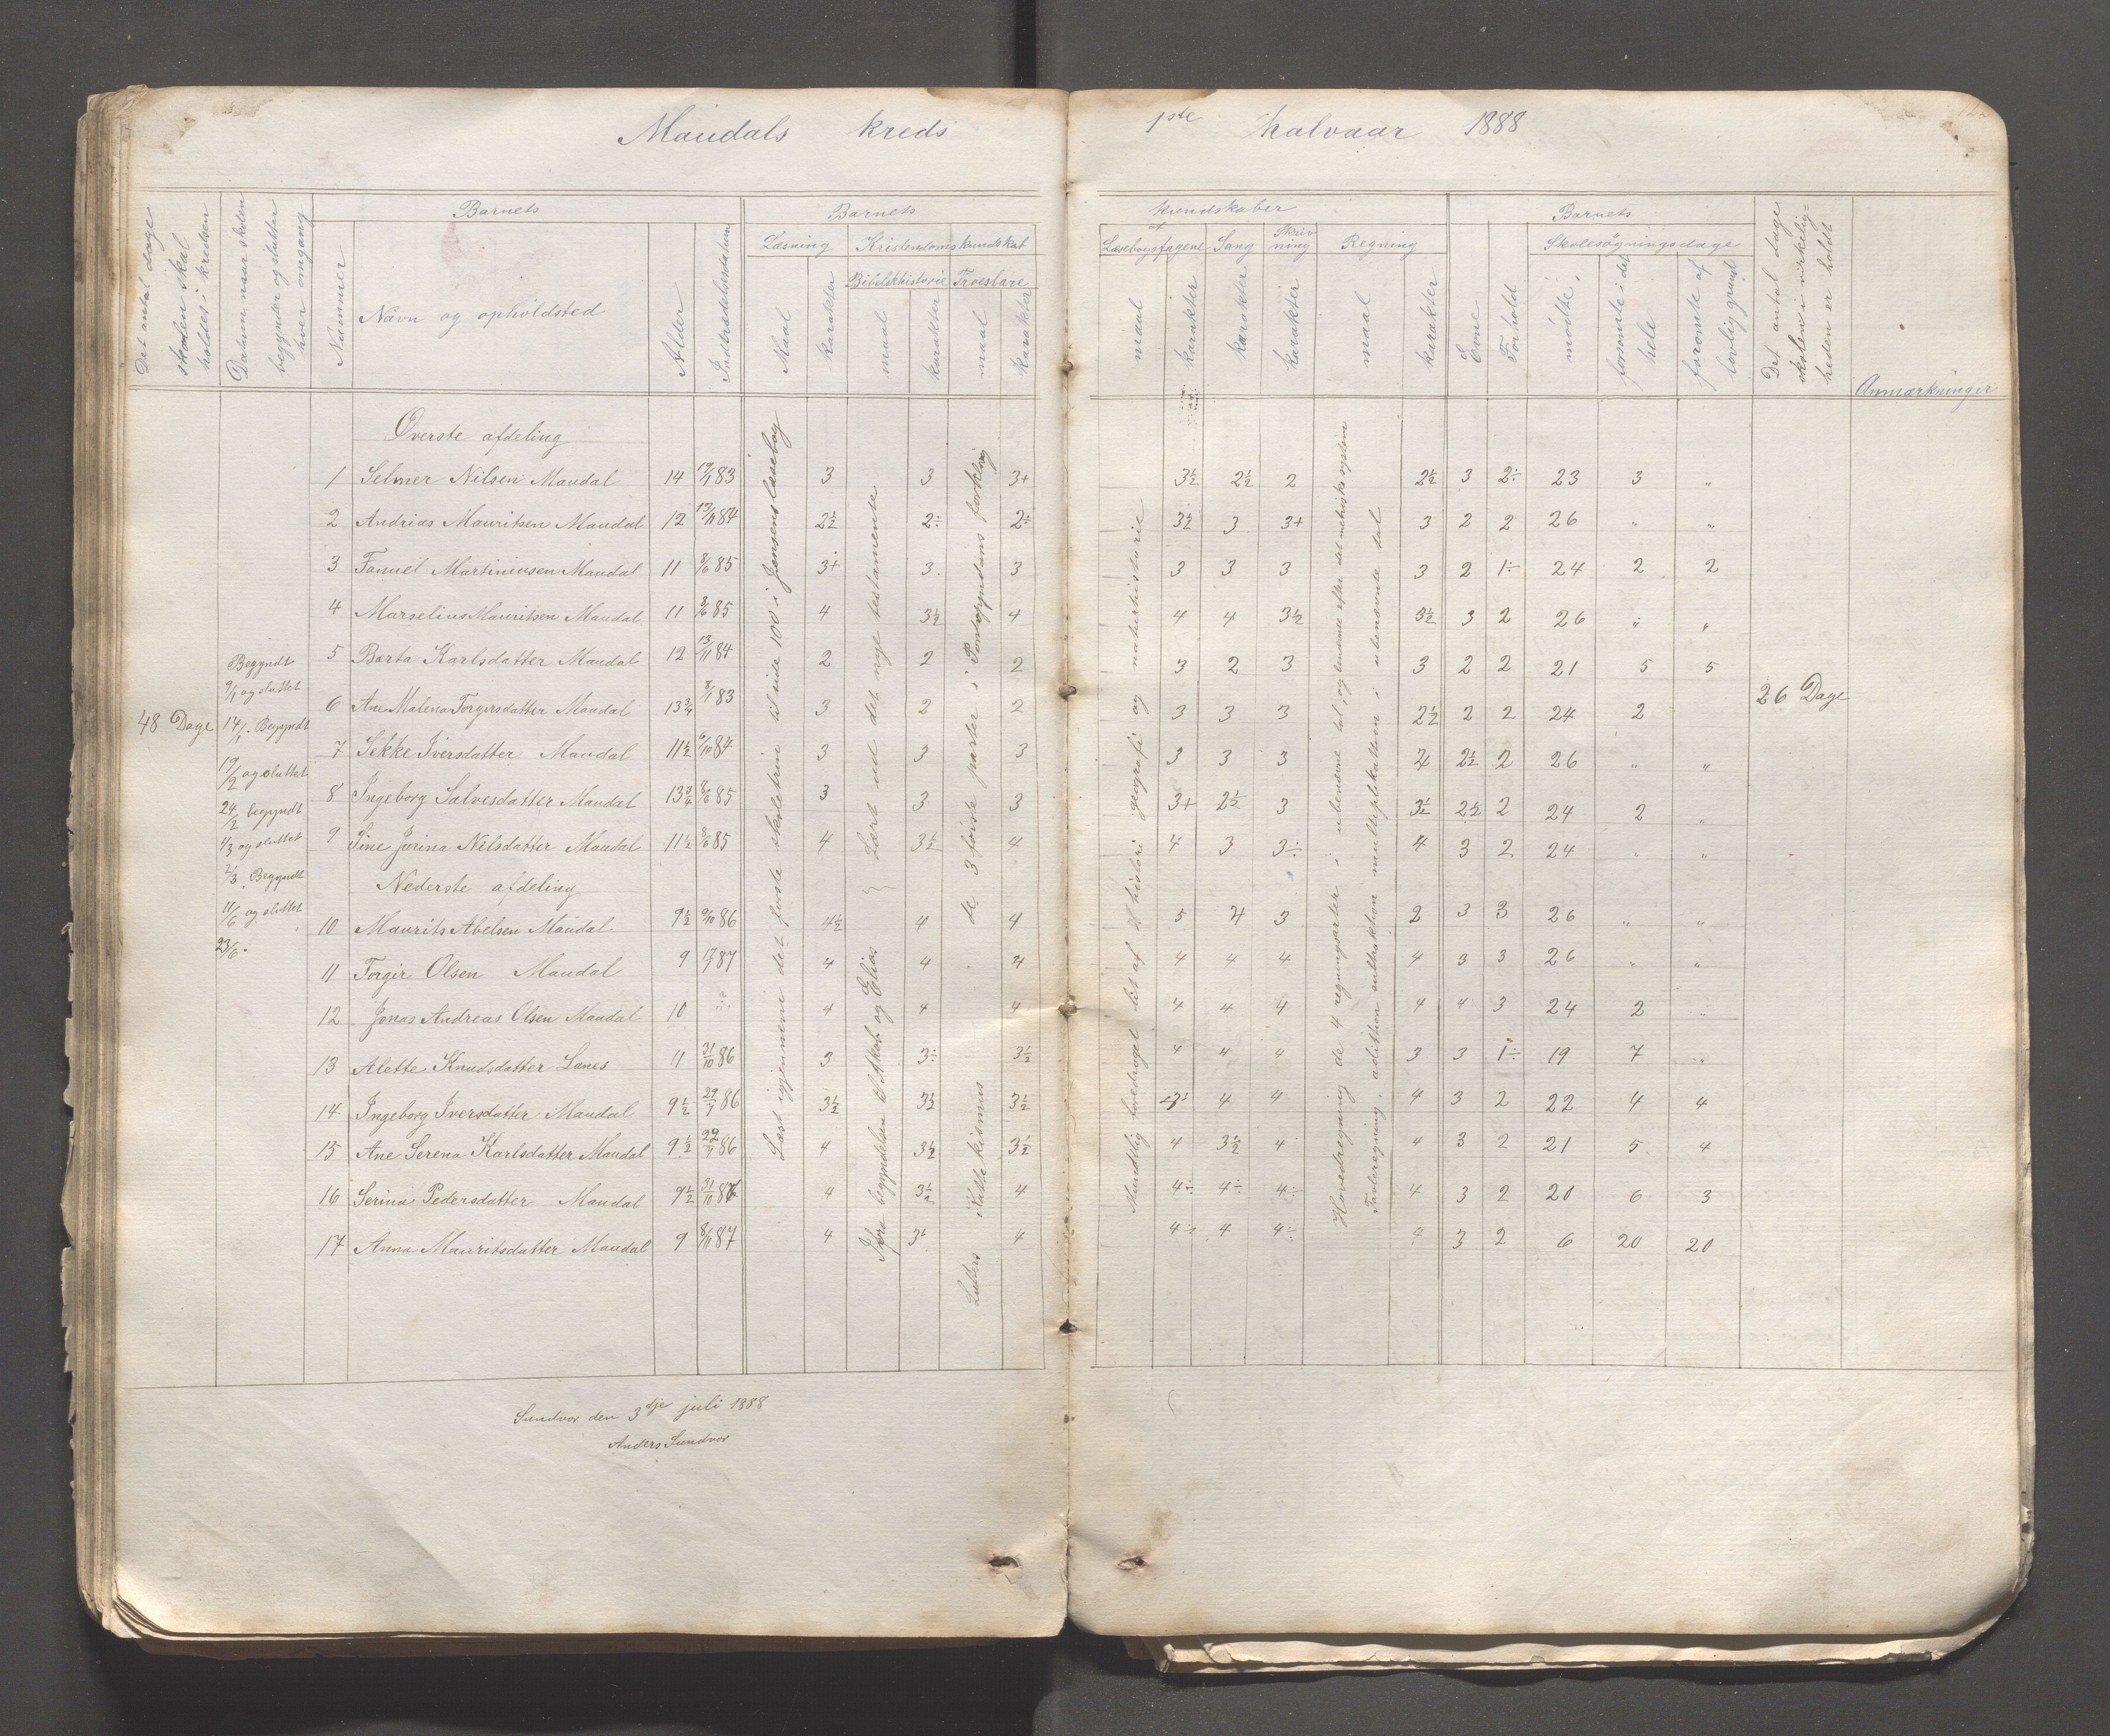 Maudals kreds 1ste halvaar 1888
Det antal dage skolen skal holdes i kredsen
Datum naar skolen begynder og slutter hver omgang
Nummer
Barnets
Navn og opholdsted
Alder
Indtrædelsesdatum
Barnets
Læsning
Maal
karakter
Kristendomskundskab
Bibelskhistorie
maal
karakter
Troeslære
maal
karakter
Kundskaber
af Læsebogsfagene
maal
karakter
Sang
karakter
Skrivning
karakter
Regning
maal
karakter
Evne
Forhold
Barnets
Skolesøgningsdage
mødte
forsømte i det hele
forømte af lovlig grund
Det antal dage skolen i virkeligheden er holdt
Anmærkninger
48 Dage
Begyndt
9/1 og sluttet
14/1. Begyndt
19/2 og sluttet
24/2 begyndt
og sluttet
2/3. Begyndt
11/6 og sluttet
23/6.
Øverste afdeling
1 Selmer Nilsen Maudal 14 83 3 3 3+ 3½ 2½ 2 2½ 3 2÷ 23 3 "
2 Andrias Mauritsen Maudal 12 13/11 84 2½ 2÷ 2÷ 3½ 3 3+ 3 2 2 26 " "
3 Fanuel Martiniusen Maudal 11 8/6 85 3+ 3 3 3 3 3 3 2 1÷ 24 2 2
4 Marselius Mauritsen Maudal 11 8/6 85 4 3½ 4 4 4 3½ 3½ 3 2 26 " "
5 Barta Karlsdatter Maudal 12 13/11 84 2 2 2 3 2 3 3 2 2 21 5 5
6 Ane Malena Torgersdatter Maudal 13¾ 8/1 83 3 2 2 3 3 3 2½ 2 2 24 2
7 Sekke Iversdatter Maudal 11½ 6/10 84 3 3 3 3 3 3 4 2½ 2 26 " "
8 Ingeborg Salvesdatter Maudal 13¾ 8/6 85 3 3 3 3+ 2½ 3 3½ 2½ 2 24 2 "
9 Sine Jurina Nilsdatter Maudal 11½ 8/6 85 4 3½ 4 4 3 3÷ 4 3 2 24 " "
Nederste afdeling
10 Maurits Abelsen Maudal 9½ 9/10 86 4½ 4 4 5 4 3 2 3 3 26 " "
11 Torger Olsen Maudal 9 87 4 4 4 4 4 4 4 3 3 26 " "
12 Jonas Andreas Olsen Maudal 10 4 4 4 4 4 4 4 4 3 24 2 "
13 Alette Knudsdatter Lanes 11 31/10 86 3 3÷ 3½ 4 4 4 3 3 1÷ 19 7 "
14 Ingeborg Iversdatter Maudal 9½ 86 3½ 3½ 3½ 4 4 4 3 2 22 4 4
15 Ane Serena Karlsdatter Maudal 9½ 86 4 3½ 3½ 4 3½ 4 4 3 2 21 5 4
16 Serina Pedersdatter Maudal 9½ 31/10 86 4 3½ 4 4÷ 4÷ 4÷ 4 3 2 20 6 3
17 Anna Mauritsdatter Maudal 9 8/11 87 4 4 4÷ 4 4÷ 4 3 2 6 20 20
26 Dage
Læst igjennem det første skoletrin til side 100 i Jensens læsebog
Lært ud det nye testamente
Fra begyndelsen til Akab og Elias
de 3 første parter i Pontoppidans forklaring
Luthers Katekismus
Mundtlig foredraget lidt af historie geografi og naturhistorie
Hovedregning de 4 regningsarter i ubenævnte tal, og benævnte efter det metriske system
Tavleregning, adition subtraktion multiplikation i ubenævnte tal
Sundvor den 3dje juli 1888
Anders Sundvor